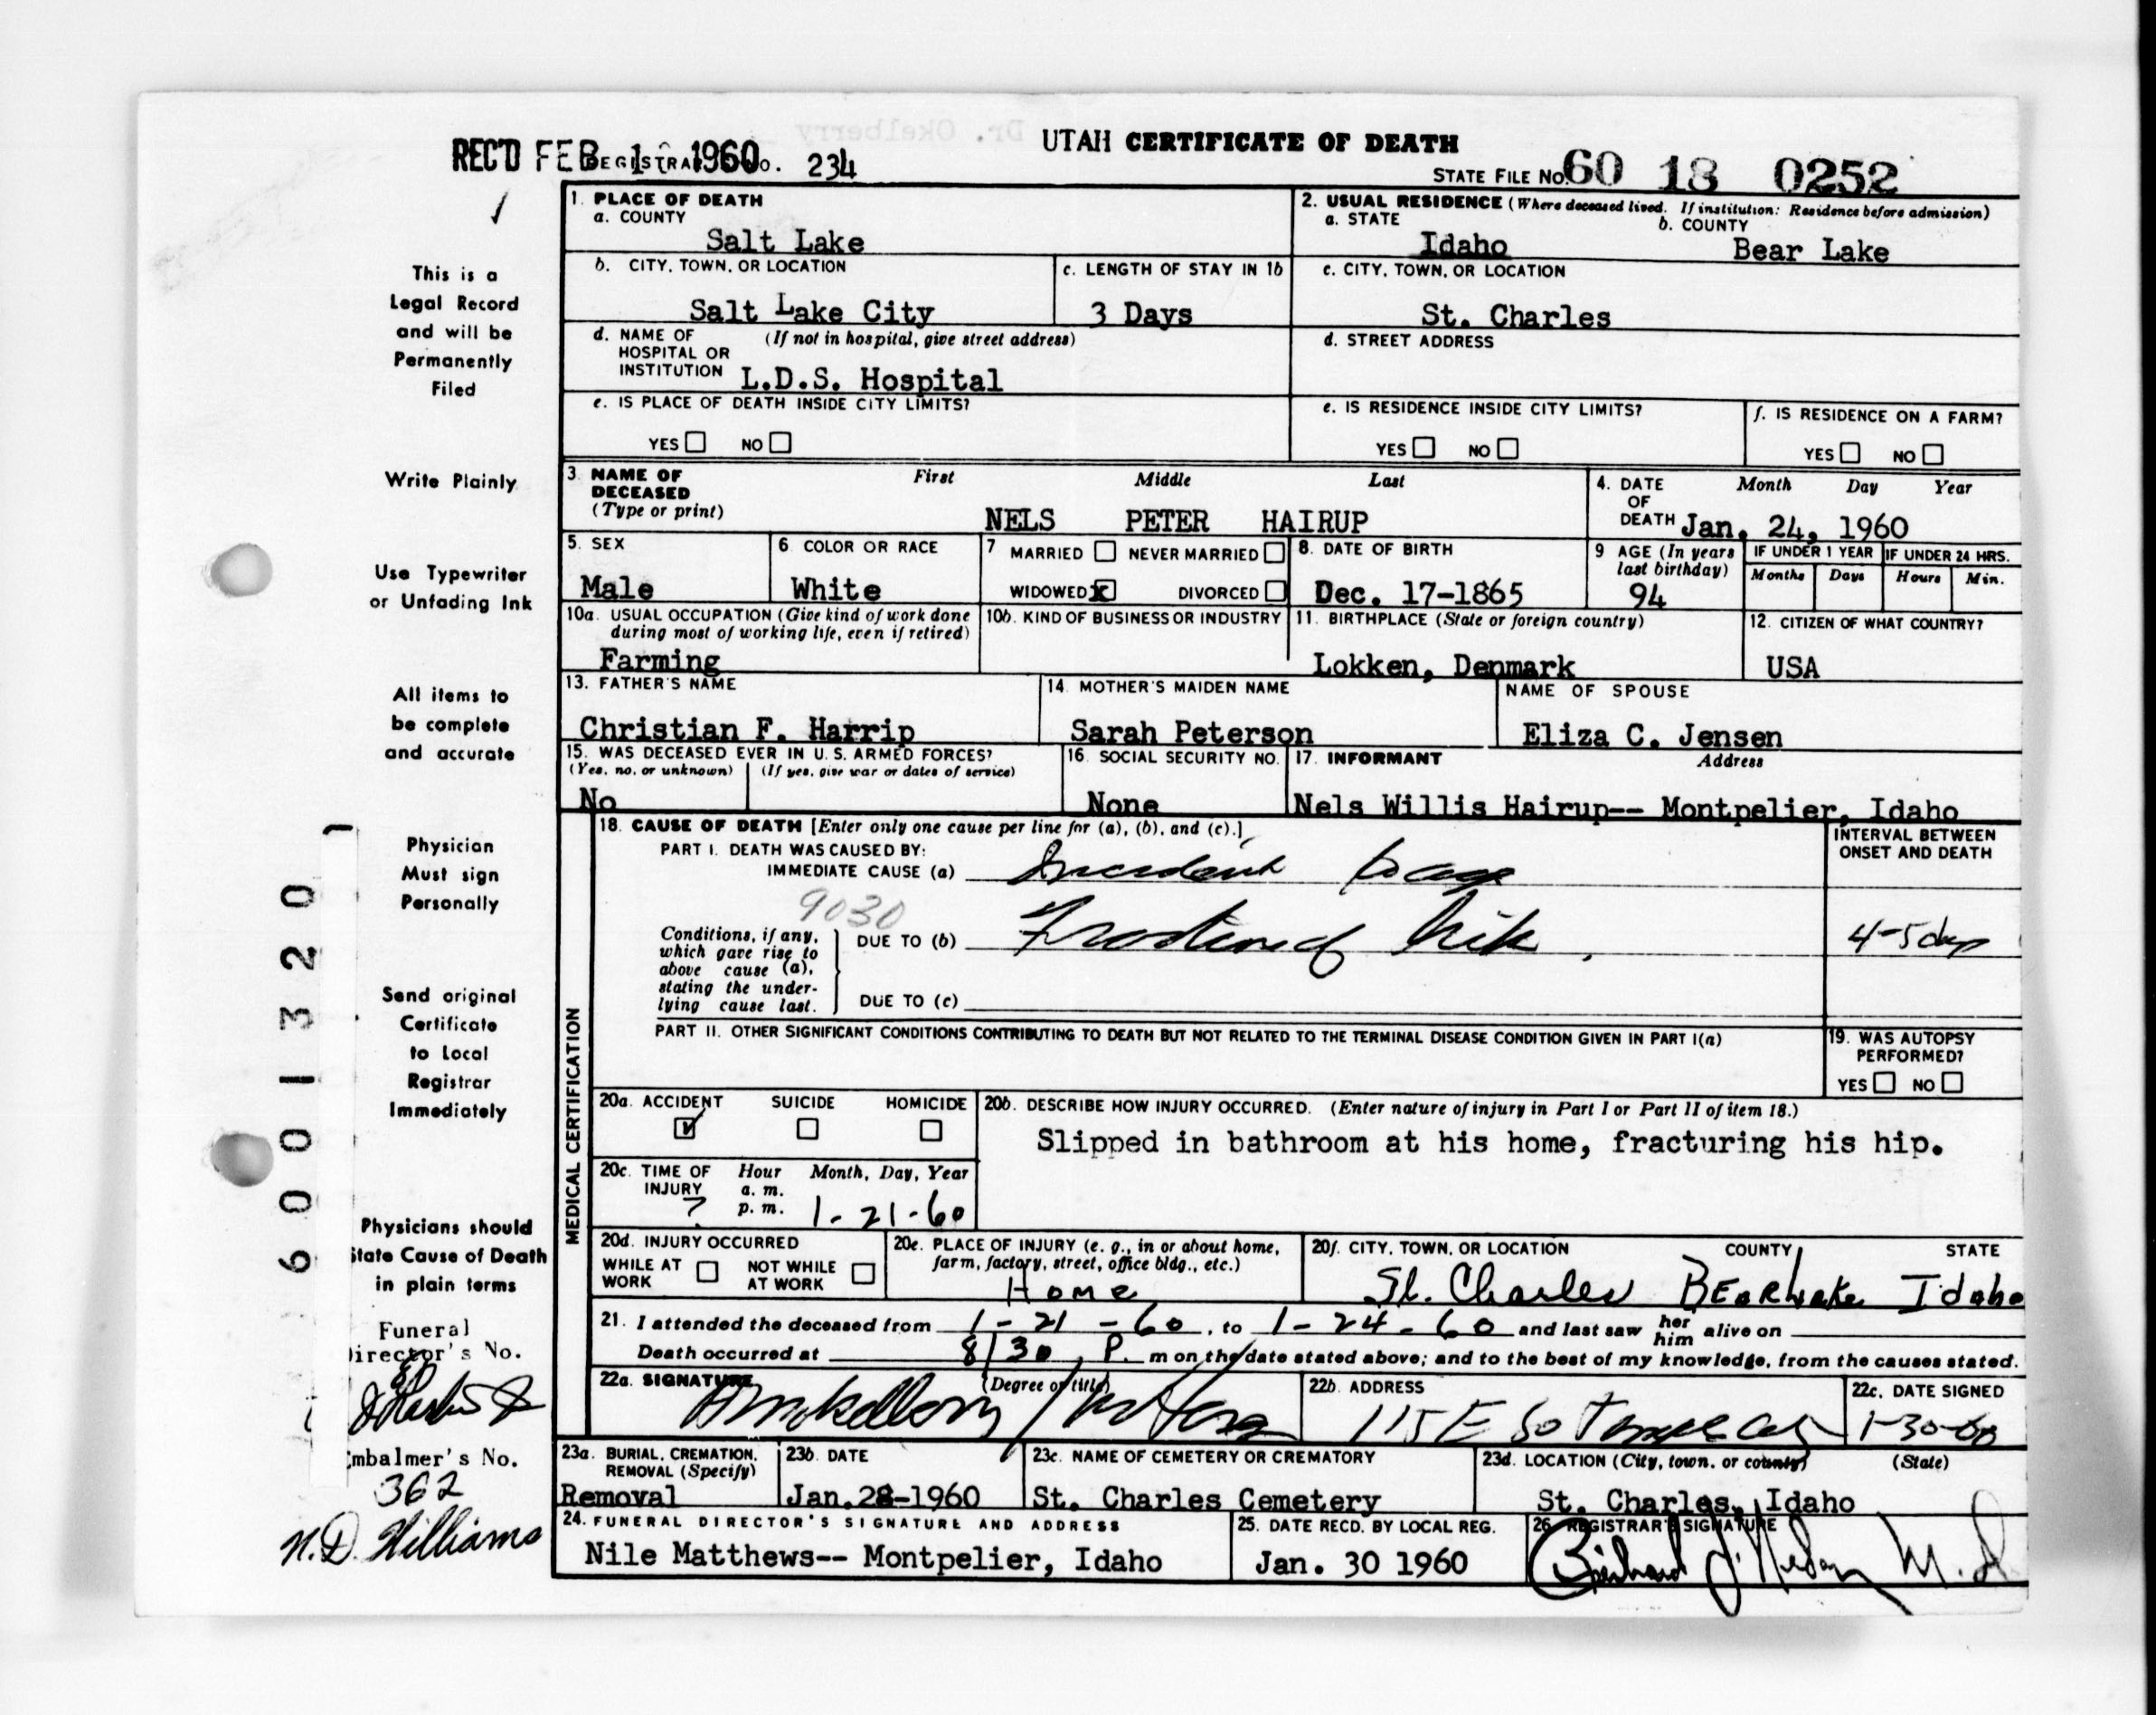 Dr. Okelberry
UTAH CERTIFICATE OF DEATH
REC'D FEB 1 1960
REGISTRAR'S NO. 234
STATE FILE NO. 60 18 0252
This is a
Legal Record
and will be
Permanently
Filed
Write Plainly
Use Typewriter
or Unfading Ink
All items to
be complete
and accurate
Physician
Must sign
Personally
Send original
Certificate
to Local
Registrar
Immediately
Physicians should
State Cause of Death
in plain terms
Funeral
Director's No.
Embalmer's No.
362
N.D. Williams
6001320
1. PLACE OF DEATH
a. COUNTY
Salt Lake
2. USUAL RESIDENCE (Where deceased lived. If institution: Residence before admission)
a. STATE
Idaho
b. COUNTY
Bear Lake
b. CITY, TOWN, OR LOCATION
Salt Lake City
c. LENGTH OF STAY IN 1b
3 Days
c. CITY, TOWN, OR LOCATION
St. Charles
d. NAME OF HOSPITAL OR INSTITUTION (If not in hospital, give street address)
L.D.S. Hospital
d. STREET ADDRESS
e. IS PLACE OF DEATH INSIDE CITY LIMITS?
YES NO
e. IS RESIDENCE INSIDE CITY LIMITS?
YES NO
f. IS RESIDENCE ON A FARM?
YES NO
3. NAME OF DECEASED (Type or print)
First Middle Last
NELS PETER HAIRUP
4. DATE OF DEATH Month Day Year
Jan. 24, 1960
5. SEX
Male
6. COLOR OR RACE
White
7 MARRIED NEVER MARRIED
WIDOWED X DIVORCED
8. DATE OF BIRTH
Dec. 17-1865
9 AGE (In years last birthday)
94
IF UNDER 1 YEAR
Months Days
IF UNDER 24 HRS.
Hours Min.
10a. USUAL OCCUPATION (Give kind of work done during most of working life, even if retired)
Farming
10b. KIND OF BUSINESS OR INDUSTRY
11. BIRTHPLACE (State or foreign country)
Lokken, Denmark
12. CITIZEN OF WHAT COUNTRY?
USA
13. FATHER'S NAME
Christian F. Harrip
14. MOTHER'S MAIDEN NAME
Sarah Peterson
NAME OF SPOUSE
Eliza C. Jensen
15. WAS DECEASED EVER IN U.S. ARMED FORCES?
(Yes, no, or unknown) (If yes, give war or dates of service)
No
16. SOCIAL SECURITY NO.
None
17. INFORMANT Address
Nels Willis Hairup-- Montpelier, Idaho
MEDICAL CERTIFICATION
18. CAUSE OF DEATH [Enter only one cause per line for (a), (b), and (c).]
PART I. DEATH WAS CAUSED BY:
IMMEDIATE CAUSE (a)
INTERVAL BETWEEN ONSET AND DEATH
9030
Conditions, if any, which gave rise to above cause (a), stating the underlying cause last.
DUE TO (b) Fractured hip 4-5 days
DUE TO (c)
PART II. OTHER SIGNIFICANT CONDITIONS CONTRIBUTING TO DEATH BUT NOT RELATED TO THE TERMINAL DISEASE CONDITION GIVEN IN PART I(a)
19. WAS AUTOPSY PERFORMED?
YES NO
20a. ACCIDENT SUICIDE HOMICIDE
20b. DESCRIBE HOW INJURY OCCURRED. (Enter nature of injury in Part I or Part II of item 18.)
Slipped in bathroom at his home, fracturing his hip.
20c. TIME OF INJURY Hour a.m. p.m. Month, Day, Year
? 1-21-60
20d. INJURY OCCURRED
WHILE AT WORK NOT WHILE AT WORK
20e. PLACE OF INJURY (e. g., in or about home, farm, factory, street, office bldg., etc.)
Home
20f. CITY, TOWN, OR LOCATION COUNTY STATE
St. Charles Bear Lake Idaho
21. I attended the deceased from 1-21-60, to 1-24-60 and last saw her him alive on
Death occurred at 8/30 P. m on the date stated above; and to the best of my knowledge, from the causes stated.
22a. SIGNATURE (Degree or title)
22b. ADDRESS
115 E So Temple
22c. DATE SIGNED
1-30-60
23a. BURIAL, CREMATION, REMOVAL (Specify)
Removal
23b. DATE
Jan. 28-1960
23c. NAME OF CEMETERY OR CREMATORY
St. Charles Cemetery
23d. LOCATION (City, town, or county) (State)
St. Charles, Idaho
24. FUNERAL DIRECTOR'S SIGNATURE AND ADDRESS
Nile Matthews-- Montpelier, Idaho
25. DATE RECD. BY LOCAL REG.
Jan. 30 1960
26. REGISTRAR'S SIGNATURE